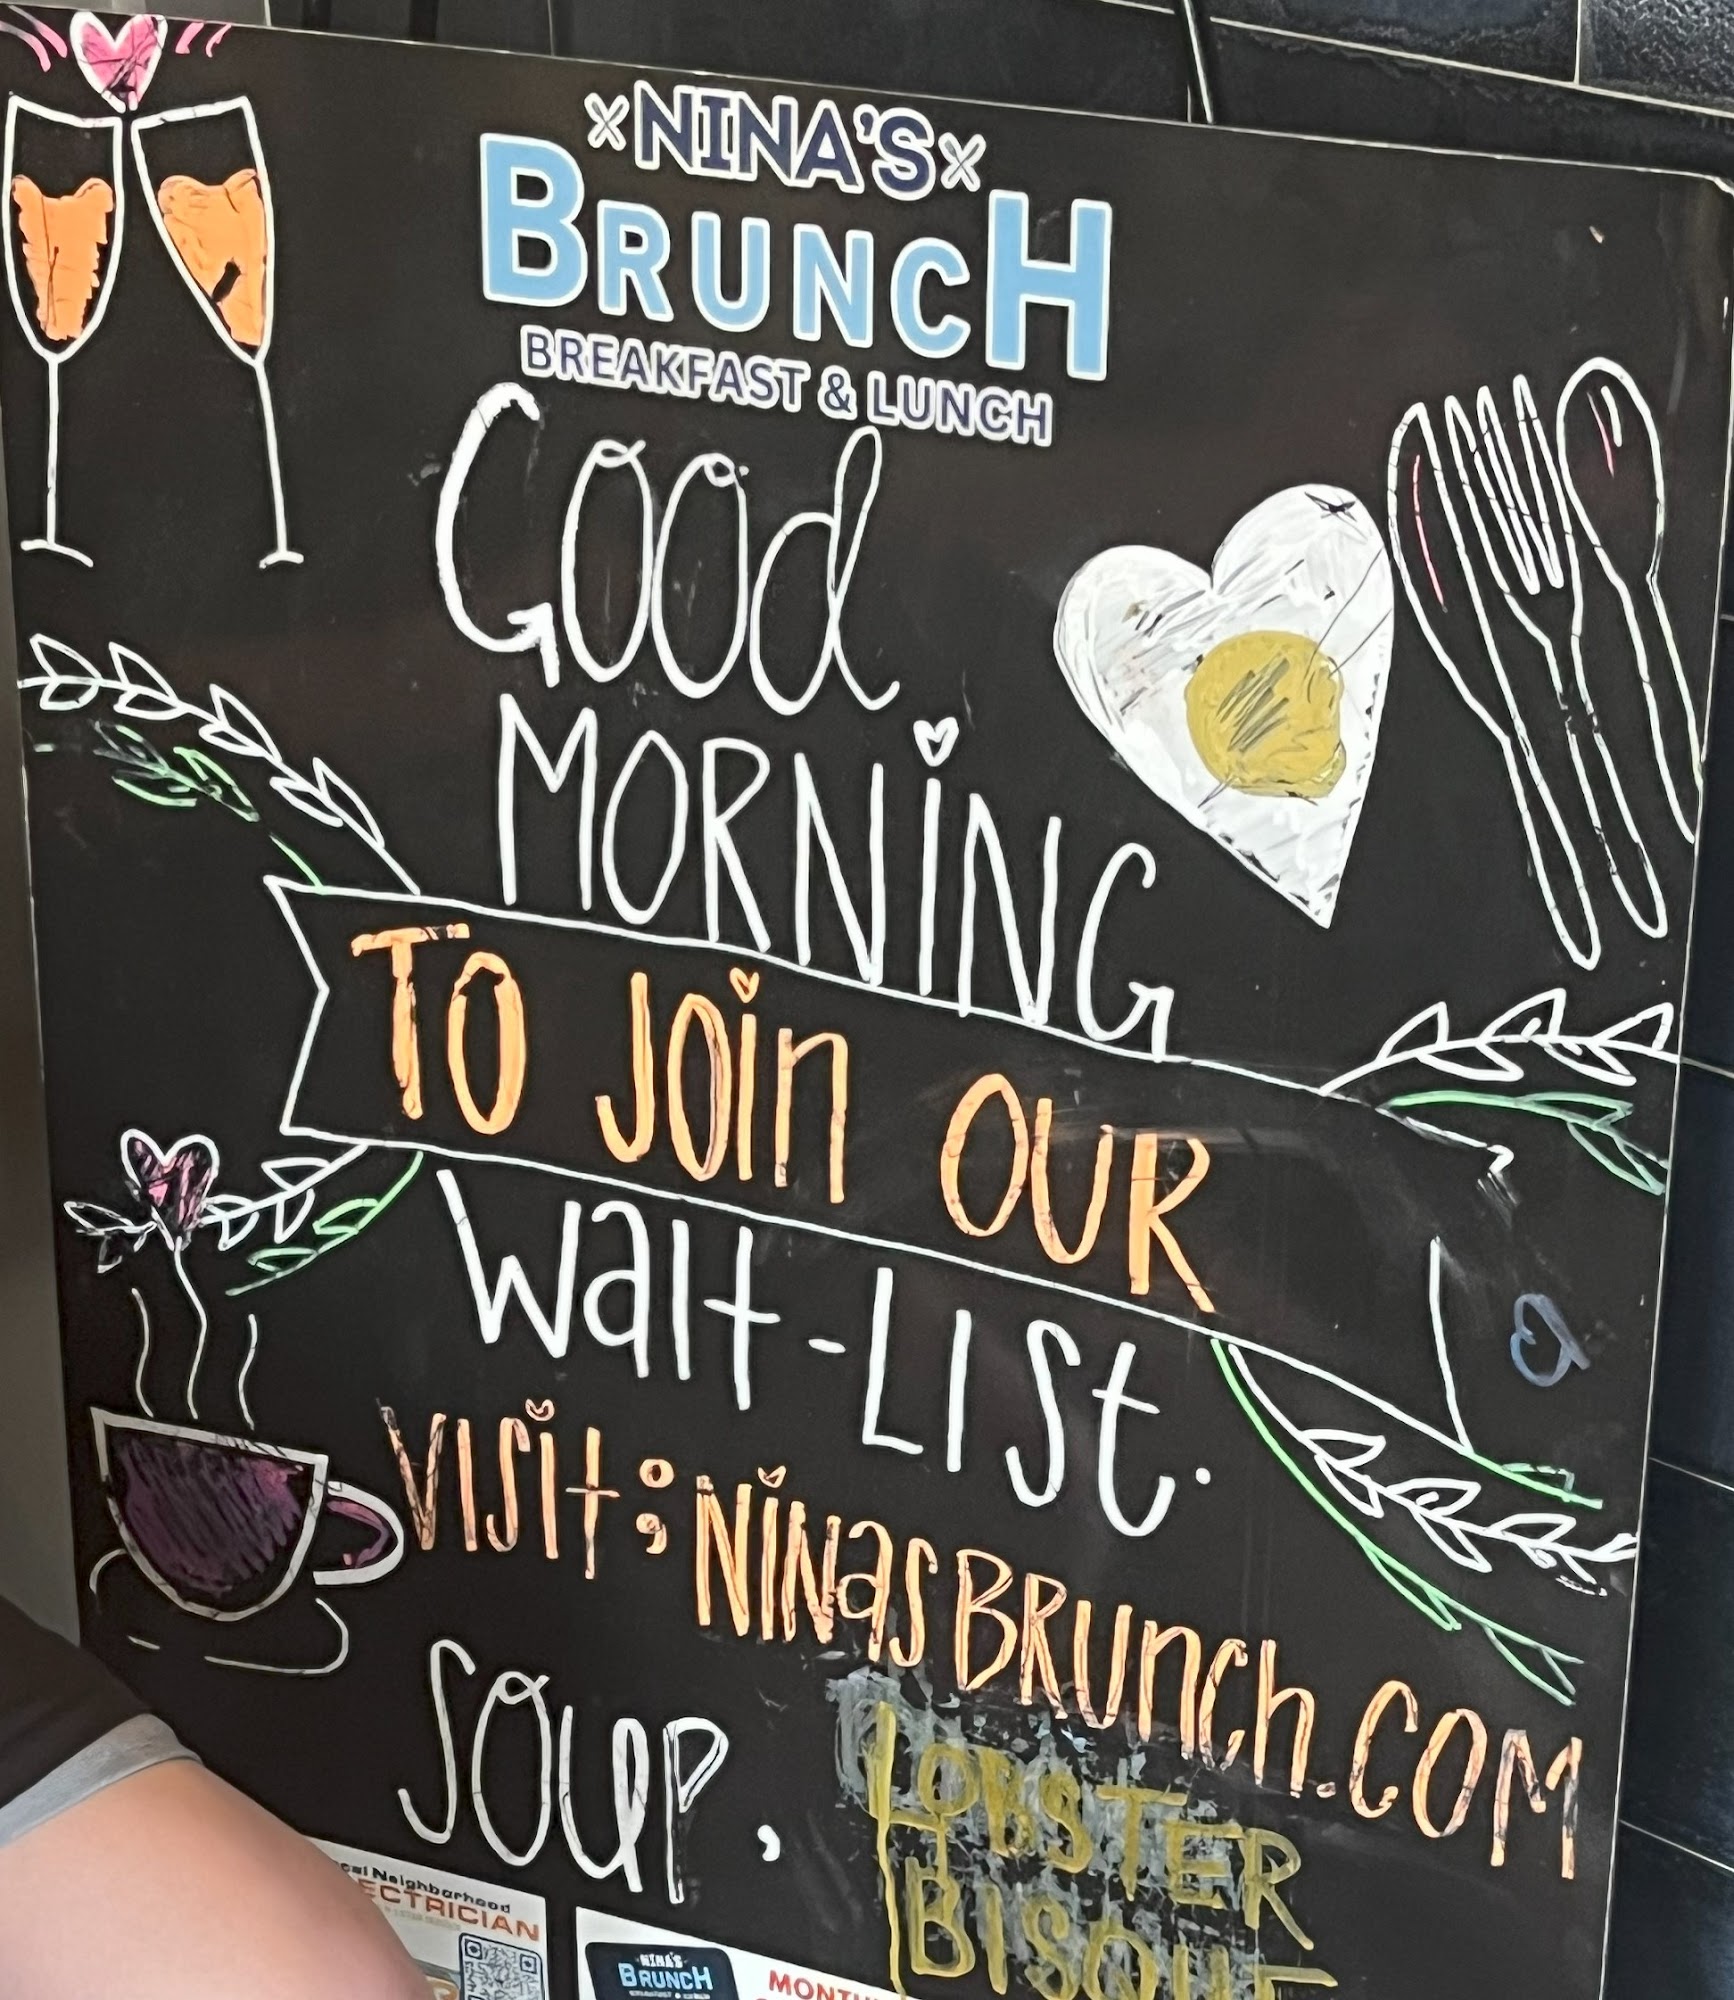 NINA'S
BRUNCH
BREAKFAST & LUNCH
Good
MORNING
TO JOiN OUR
WaIt-LIST.
VISit; NINasBRUnch.COM
SOUP,
LOBSTER
BISQUE
Neighborhood
NINA'S
BRUNCH